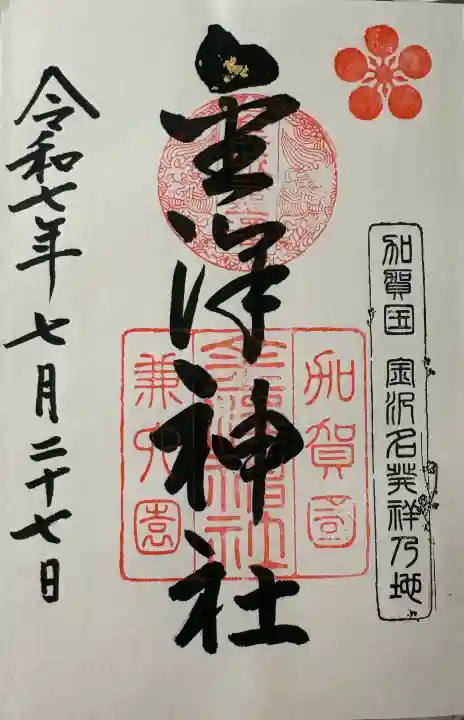 加賀国 金沢名発祥乃地
金澤神社
加賀國
金澤神社
兼六園
令和七年 七月二十七日